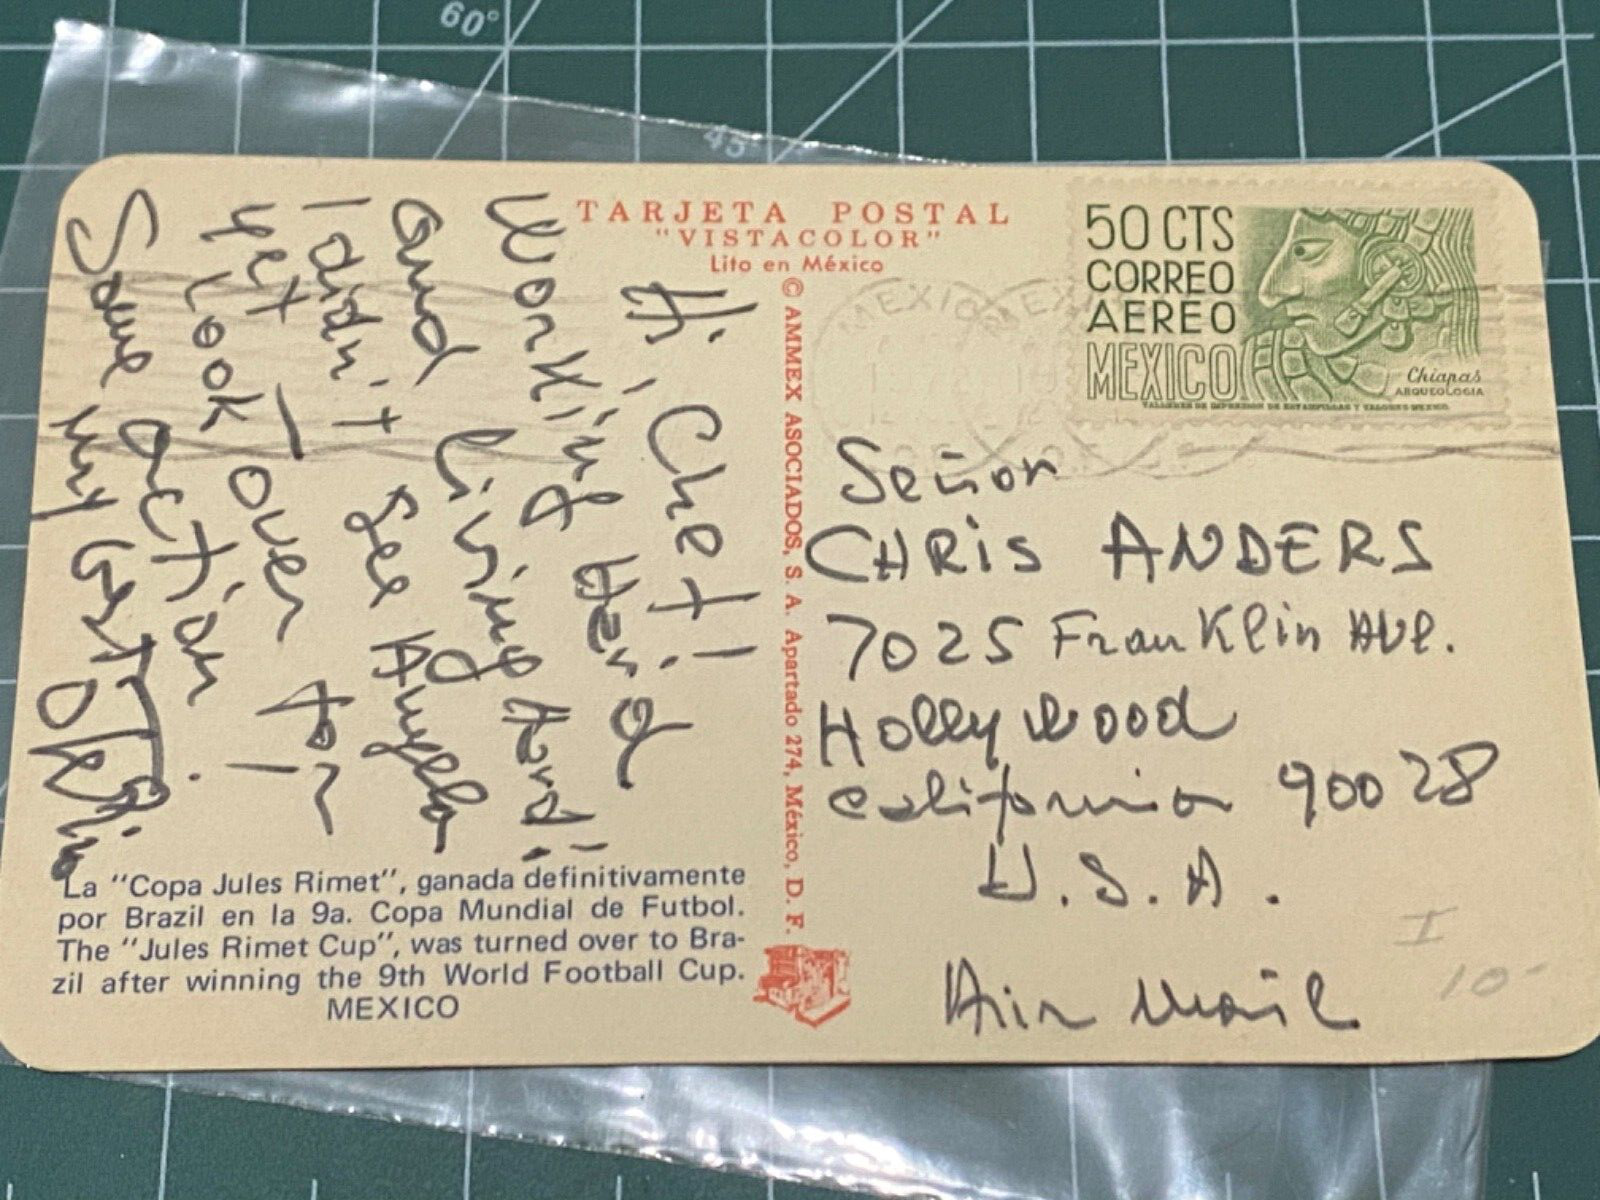 60°
45°
TARJETA POSTAL
"VISTACOLOR"
Lito en México
© AMMEX ASOCIADOS, S. A. Apartado 274, México, D. F.
Hi, Chet!
Working Hard
and living Hard!
I didn't see Angela
yet –
Look over for
some action!
my best
50 CTS
CORREO
AEREO
MEXICO
Chiapas
ARQUEOLOGIA
TALLERES DE IMPRESION DE ESTAMPILLAS Y VALORES-MEXICO
MEXICO
Señor
CHRis ANDERS
7025 Franklin AVe.
Hollywood
california 90028
U.S.A.
Air Mail
I
10-
La "Copa Jules Rimet", ganada definitivamente
por Brazil en la 9a. Copa Mundial de Futbol.
The "Jules Rimet Cup", was turned over to Bra-
zil after winning the 9th World Football Cup.
MEXICO